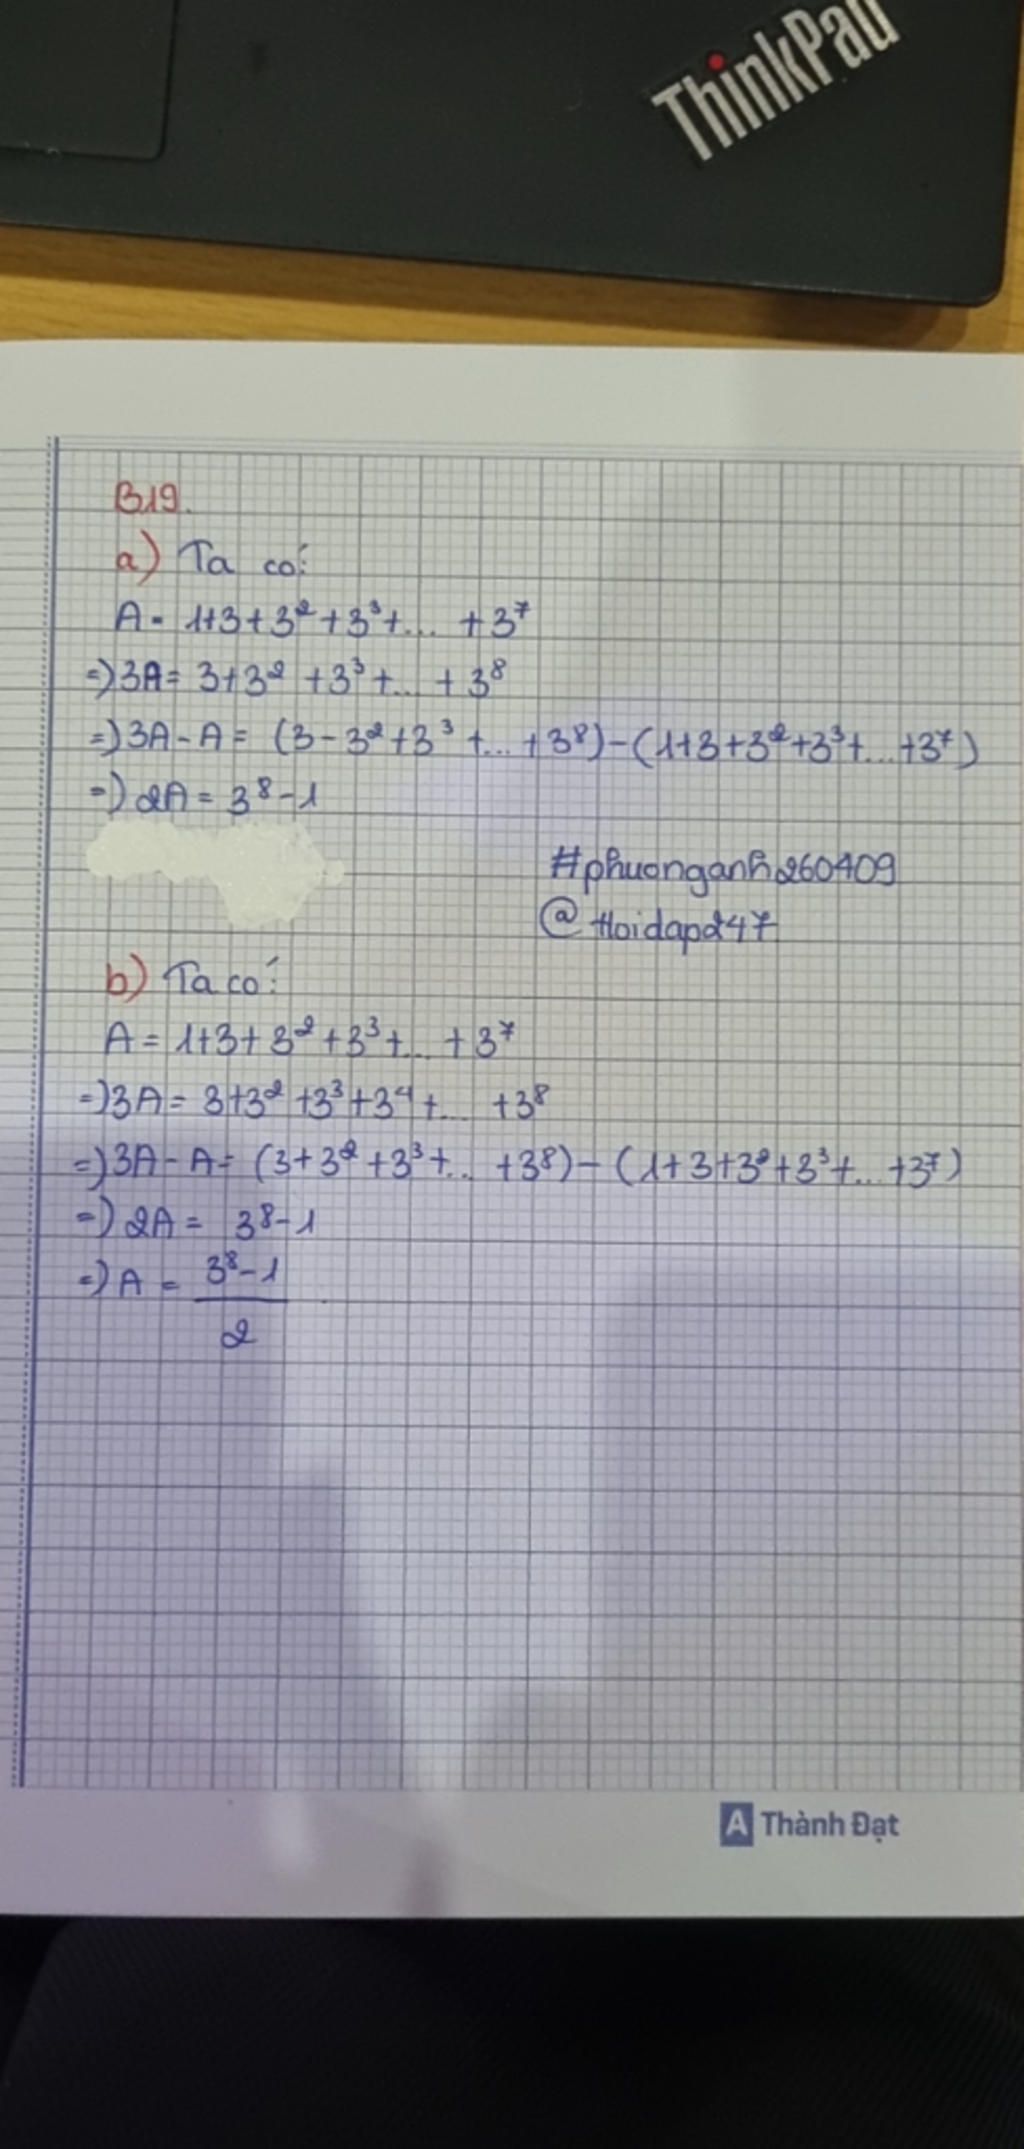 ThinkPad
B19.
a) Ta có:
A = 1+3+3²+3³+... +3⁷
=) 3A = 3+3² +3³+... +3⁸
=) 3A - A = (3-3²+3³ +... +3⁸)-(1+3+3²+3³+...+3⁷)
=) 2A = 3⁸-1
#phuonganh260409
@Hoidap247
b) Ta có:
A = 1+3+3²+3³+... +3⁷
=) 3A = 3+3² +3³+3⁴+... +3⁸
=) 3A - A = (3+3²+3³+... +3⁸)-(1+3+3²+3³+...+3⁷)
=) 2A = 3⁸-1
=) A = 3⁸-1
2
A Thành Đạt